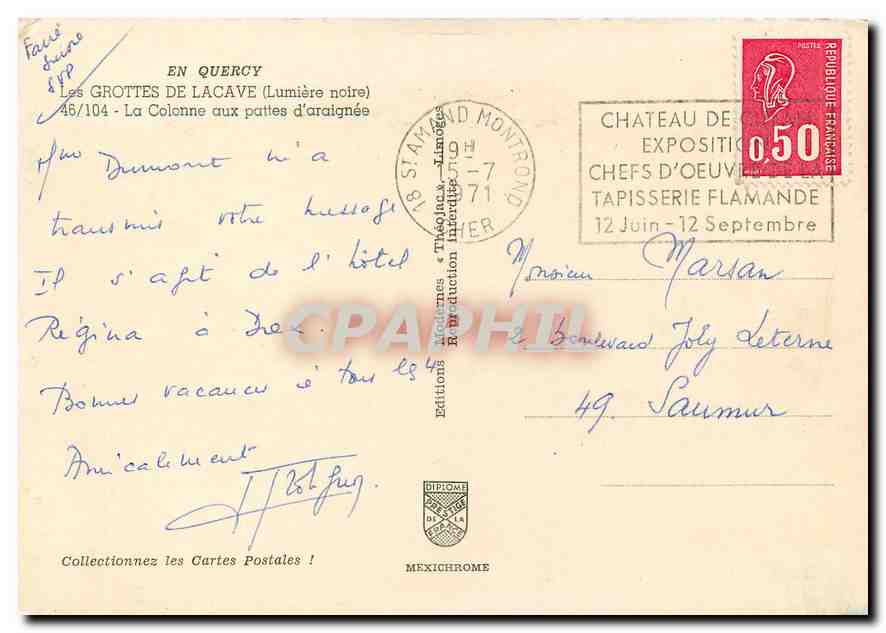 Faire
suivre
SVP
EN QUERCY
Les GROTTES DE LACAVE (Lumière noire)
46/104 - La Colonne aux pattes d'araignée
Mme Dumont m'a
transmis votre message
Il s'agit de l'hôtel
Régina à Dax.
Bonnes vacances à tous les 4
Amicalement
Collectionnez les Cartes Postales !
Editions Modernes « Théojac », Limoges
Reproduction interdite
DIPLOME
PRESTIGE
DE LA
FRANCE
MEXICHROME
18 ST AMAND MONTROND
9H
5-7
1971
CHER
CHATEAU DE
EXPOSITION
CHEFS D'OEUVRE DE LA
TAPISSERIE FLAMANDE
12 Juin - 12 Septembre
POSTES
REPUBLIQUE FRANÇAISE
0,50
Monsieur Marsan
2 boulevard Joly Leterne
49. Saumur
CPAPHIL